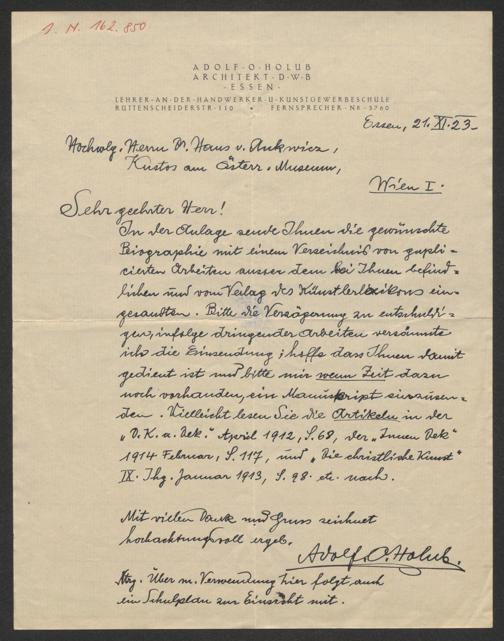 J. N. 162.850
ADOLF·O·HOLUB
ARCHITEKT·D·W·B
·ESSEN·
LEHRER·AN·DER·HANDWERKER·U·KUNSTGEWERBESCHULE
RÜTTENSCHEIDERSTR·110 • FERNSPRECHER·NR·3760
Essen, 21.XI.23.
Hochwlg. Herrn Dr. Hans v. Ankwicz,
Kustos am Österr. Museum,
Wien I.
Sehr geehrter Herr!
In der Anlage sende Ihnen die gewünschte
Biographie mit einem Verzeichnis von publi-
cierten Arbeiten ausser dem bei Ihnen befind-
lichen und vom Verlag des Künstlerlexikons ein-
gesandten. Bitte die Verzögerung zu entschuldi-
gen, infolge dringender Arbeiten versäumte
ich die Einsendung; hoffe dass Ihnen damit
gedient ist und bitte mir wenn Zeit dazu
noch vorhanden, ein Manuskript einzusen-
den. Vielleicht lesen Sie die Artikeln in der
"D. K. u. Dek." April 1912, S. 68, der "Innen Dek"
1914 Februar, S. 117, und "Die christliche Kunst"
IX. Jhg. Januar 1913, S. 98 etc. nach.
Mit vielen Dank und Gruss zeichnet
hochachtungsvoll ergeb.
Adolf. O. Holub.
Ntrg. Über m. Verwendung hier folgt auch
ein Schulplan zur Einsicht mit.